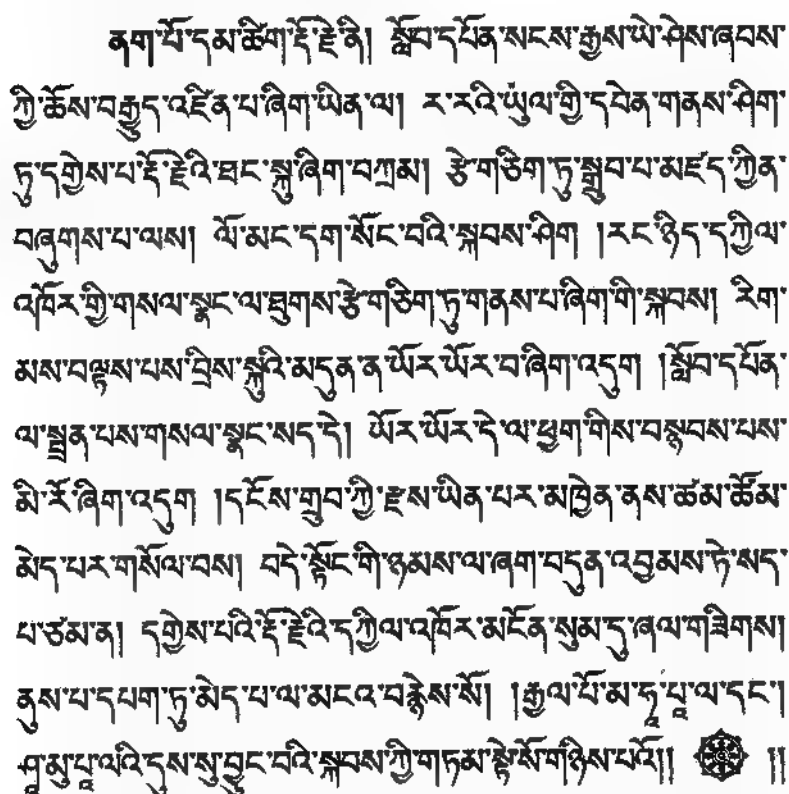 ནག་པོ་དམ་ཚིག་རྡོ་རྗེ་ནི། སློབ་དཔོན་སངས་རྒྱས་ཡེ་ཤེས་ཞབས་
ཀྱི་ཆོས་བརྒྱུད་འཛིན་པ་ཞིག་ཡིན་ལ། ར་རའི་ཡུལ་གྱི་དབེན་གནས་ཤིག་
ཏུ་དགྱེས་པ་རྡོ་རྗེའི་ཐང་སྐུ་ཞིག་བཀྲམ། རྩེ་གཅིག་ཏུ་སྒྲུབ་པ་མཛད་ཀྱིན་
བཞུགས་པ་ལས། ལོ་མང་དག་སོང་བའི་སྐབས་ཤིག །རང་ཉིད་དཀྱིལ་
འཁོར་གྱི་གསལ་སྣང་ལ་ཐུགས་རྩེ་གཅིག་ཏུ་གནས་པ་ཞིག་གི་སྐབས། རིག་
མས་བལྟས་པས་བྲིས་སྐུའི་མདུན་ན་ཡོར་ཡོར་བ་ཞིག་འདུག །སློབ་དཔོན་
ལ་སྨྲན་པས་གསལ་སྣང་སད་དེ། ཡོར་ཡོར་དེ་ལ་ཕྱག་གིས་བསྙབས་པས་
མི་རོ་ཞིག་འདུག །དངོས་གྲུབ་ཀྱི་རྫས་ཡིན་པར་མཁྱེན་ནས་ཚམ་ཚོམ་
མེད་པར་གསོལ་བས། བདེ་སྟོང་གི་ཉམས་ལ་ཞག་བདུན་འབྱམས་ཏེ་སད་
པ་ཙམ་ན། དགྱེས་པའི་རྡོ་རྗེའི་དཀྱིལ་འཁོར་མངོན་སུམ་དུ་ཞལ་གཟིགས།
ནུས་པ་དཔག་ཏུ་མེད་པ་ལ་མངའ་བརྙེས་སོ། །རྒྱལ་པོ་མ་ཧཱ་པཱ་ལ་དང་།
ཤཱ་མུ་པཱ་ལའི་དུས་སུ་བྱུང་བའི་སྐབས་ཀྱི་གཏམ་སྟེ་སོ་གཉིས་པའོ།། །།